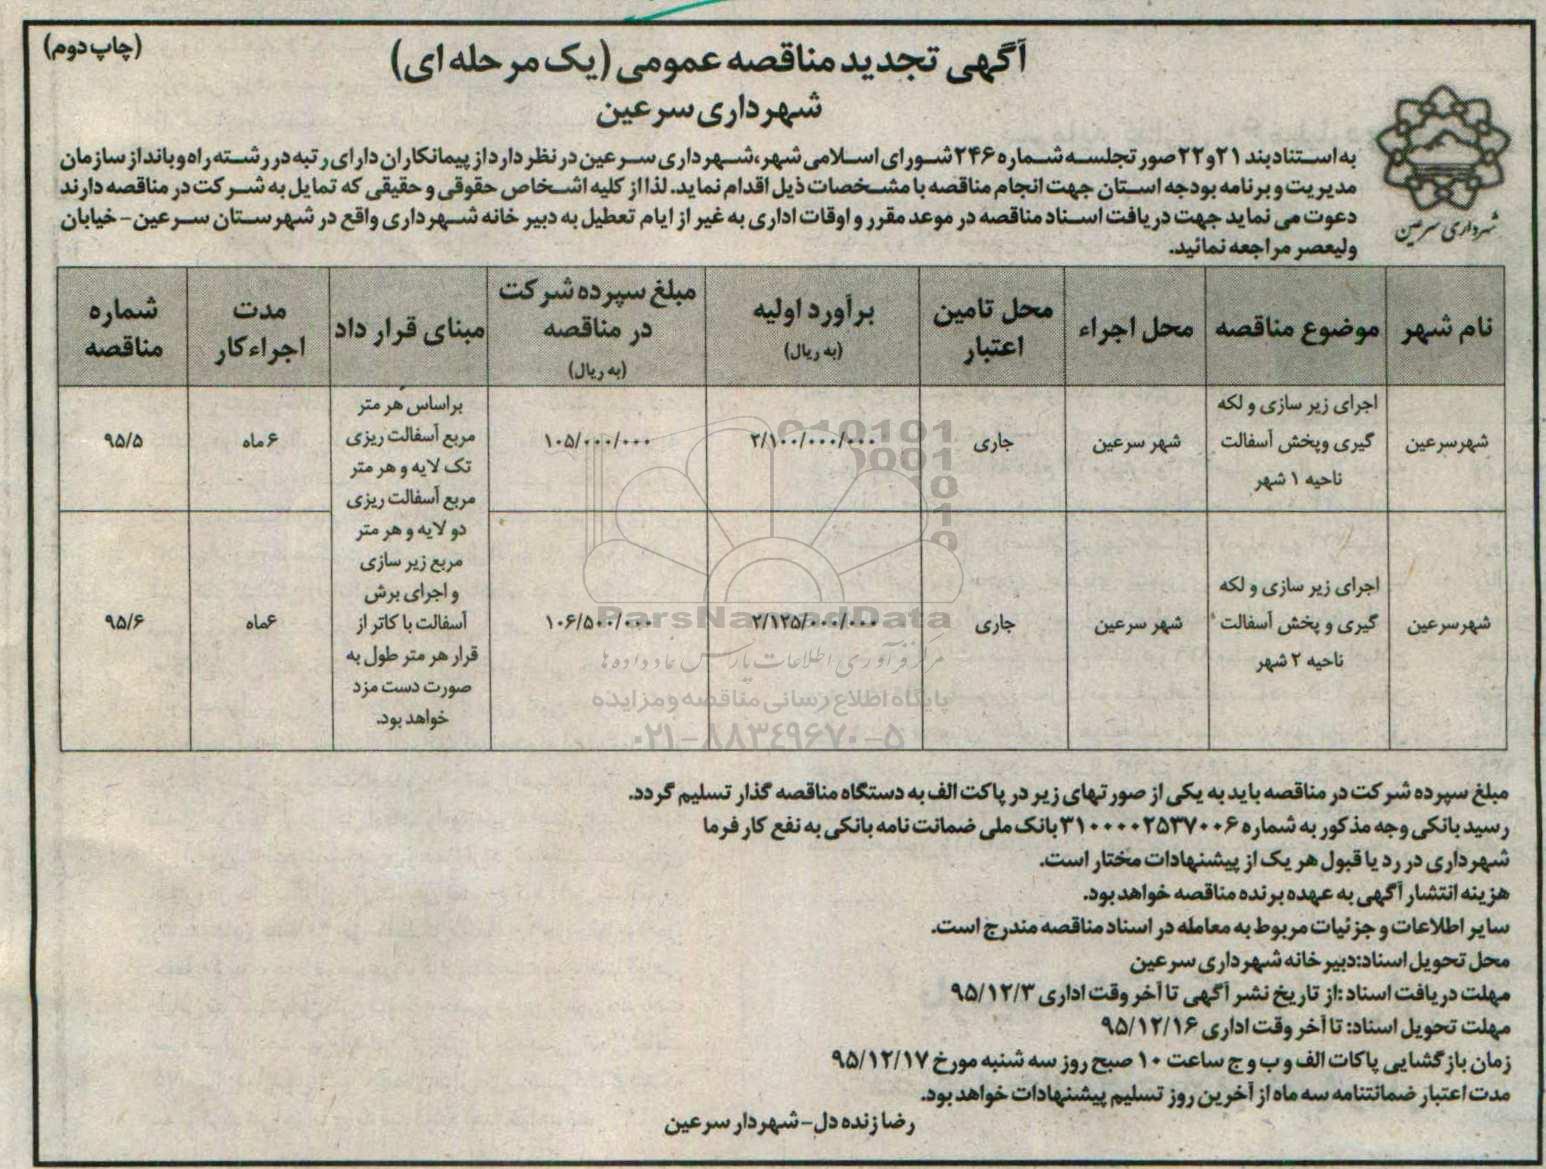 (چاپ دوم)
آگهی تجدید مناقصه عمومی (یک مرحله ای)
شهرداری سرعین
شهرداری سرعین
به استناد بند ۲۱و۲۲صورتجلسه شماره ۲۴۶شورای اسلامی شهر،شهرداری سرعین در نظر دارداز پیمانکاران دارای رتبه در رشته راه و بانداز سازمان
مدیریت و برنامه بودجه استان جهت انجام مناقصه با مشخصات ذیل اقدام نماید. لذا از کلیه اشخاص حقوقی و حقیقی که تمایل به شرکت در مناقصه دارند
دعوت می نماید جهت دریافت اسناد مناقصه در موعد مقرر و اوقات اداری به غیر از ایام تعطیل به دبیر خانه شهرداری واقع در شهرستان سرعین-خیابان
ولیعصر مراجعه نمائید.
نام شهر
موضوع مناقصه
محل اجراء
محل تامین
اعتبار
برآورد اولیه
(به ریال)
مبلغ سپرده شرکت
در مناقصه
(به ریال)
مبنای قرار داد
مدت
اجراءکار
شماره
مناقصه
شهرسرعین
اجرای زیر سازی و لکه
گیری وپخش آسفالت
ناحیه ۱ شهر
شهر سرعین
جاری
۲/۱۰۰/۰۰۰/۰۰۰
۱۰۵/۰۰۰/۰۰۰
براساس هر متر
مربع آسفالت ریزی
تک لایه و هر متر
مربع آسفالت ریزی
دو لایه و هر متر
مربع زیر سازی
و اجرای برش
آسفالت با کاتر از
قرار هر متر طول به
صورت دست مزد
خواهد بود.
۶ ماه
۹۵/۵
شهرسرعین
اجرای زیر سازی و لکه
گیری و پخش آسفالت
ناحیه ۲ شهر
شهر سرعین
جاری
۲/۱۲۵/۰۰۰/۰۰۰
۱۰۶/۵۰۰/۰۰۰
۶ماه
۹۵/۶
010101
0001
10
1
0
ParsNamadData
مرکز فرآوری اطلاعات پارس نماد داده ها
پایگاه اطلاع رسانی مناقصه و مزایده
۰۲۱-۸۸۳۴۹۶۷۰-۵
مبلغ سپرده شرکت در مناقصه باید به یکی از صورتهای زیر در پاکت الف به دستگاه مناقصه گذار تسلیم گردد.
رسید بانکی وجه مذکور به شماره ۳۱۰۰۰۰۲۵۳۷۰۰۶بانک ملی ضمانت نامه بانکی به نفع کار فرما
شهرداری در رد یا قبول هر یک از پیشنهادات مختار است.
هزینه انتشار آگهی به عهده برنده مناقصه خواهد بود.
سایر اطلاعات و جزئیات مربوط به معامله در اسناد مناقصه مندرج است.
محل تحویل اسناد:دبیر خانه شهرداری سرعین
مهلت دریافت اسناد :از تاریخ نشر آگهی تا آخر وقت اداری ۹۵/۱۲/۳
مهلت تحویل اسناد: تا آخر وقت اداری ۹۵/۱۲/۱۶
زمان بازگشایی پاکات الف و ب و ج ساعت ۱۰ صبح روز سه شنبه مورخ ۹۵/۱۲/۱۷
مدت اعتبار ضمانتنامه سه ماه از آخرین روز تسلیم پیشنهادات خواهد بود.
رضا زنده دل-شهردار سرعین